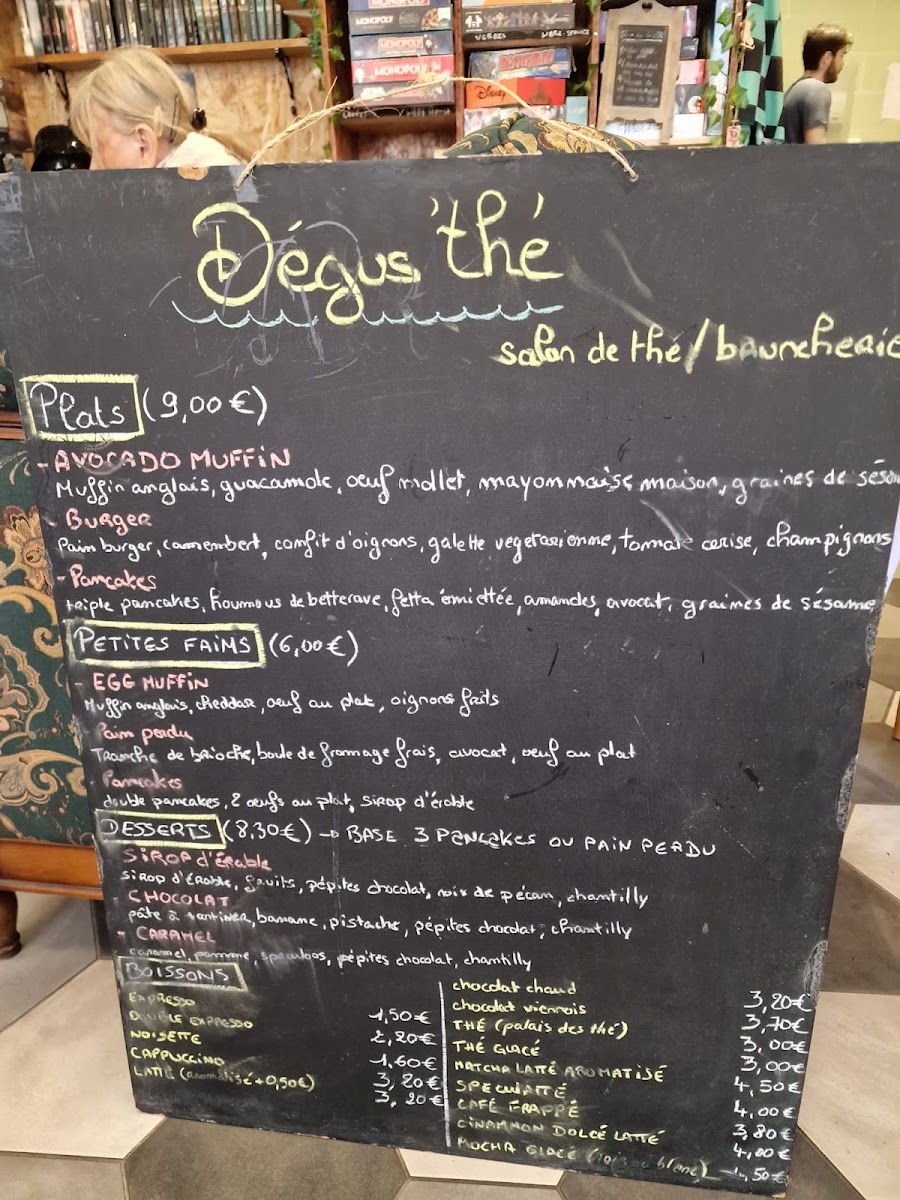 MONOPOLY
MONOPOLY
MONOPOLY
Disney
Dégus'thé
salon de thé/bruncherie
Plats (9,00€)
- AVOCADO MUFFIN
Muffin anglais, guacamole, oeuf mollet, mayonnaise maison, graines de sésa
- Burger
Pain burger, camembert, confit d'oignons, galette vegetarienne, tomate cerise, champignons
- Pancakes
triple pancakes, houmous de betterave, fetta émiettée, amandes, avocat, graines de sésame
PETITES FAIMS (6,00€)
- EGG MUFFIN
Muffin anglais, cheddar, oeuf au plat, oignons frits
Pain perdu
Tranche de brioche, boule de fromage frais, avocat, oeuf au plat
Pancakes
double pancakes, 2 oeufs au plat, sirop d'érable
DESSERTS (8,30€) → BASE 3 PANCAKES OU PAIN PERDU
- SIROP d'érable
sirop d'érable, fruits, pépites chocolat, noix de pécan, chantilly
- CHOCOLAT
pâte à tartiner, banane, pistache, pépites chocolat, chantilly
- CARAMEL
caramel, pomme, speculoos, pépites chocolat, chantilly
BOISSONS
EXPRESSO 1,50€
DOUBLE EXPRESSO 2,20€
NOISETTE 1,60€
CAPPUCCINO 3,20€
LATTÉ (aromatisé +0,50€) 3,20€
chocolat chaud 3,20€
chocolat viennois 3,70€
THÉ (palais des thé) 3,00€
THÉ GLACÉ 3,00€
MATCHA LATTÉ AROMATISÉ 4,50€
SPECULATTÉ 4,00€
CAFÉ FRAPPÉ 3,80€
CINAMMON DOLCÉ LATTÉ 4,00€
MOCHA GLACÉ blanc) 4,50€